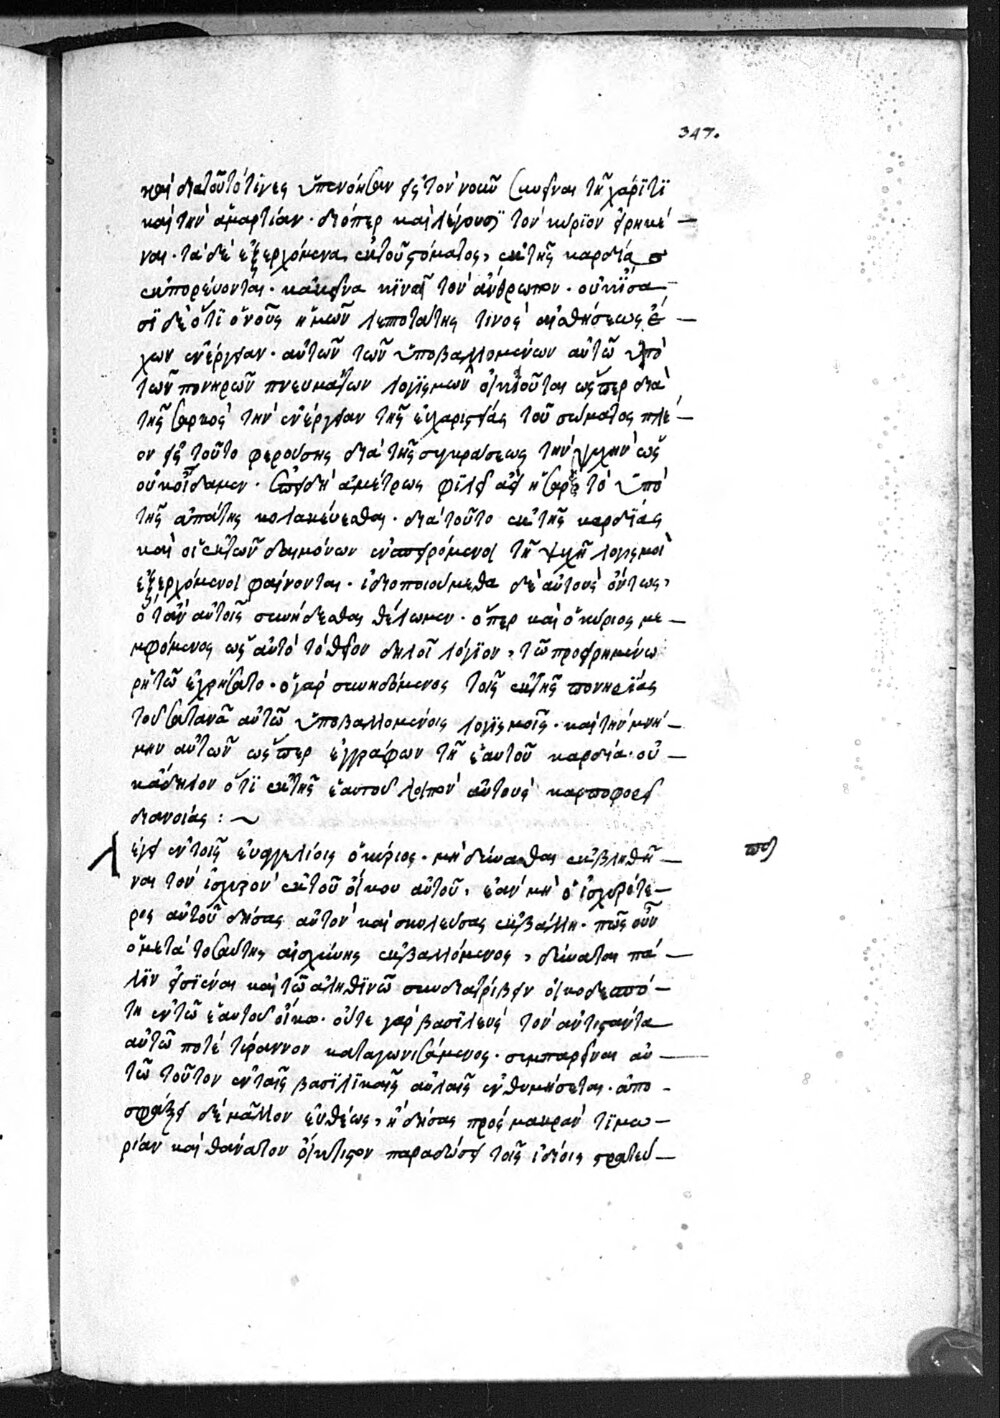 347.
καὶ διατοῦτό τινες ὑπενόησαν εἰς τὸν νοῦν συνεῖναι τῇ χάριτι
καὶ τὴν ἁμαρτίαν· διόπερ καὶ λέγουσι τὸν κύριον εἰρηκέ
ναι· τὰ δὲ ἐξερχόμενα ἐκ τοῦ στόματος, ἐκ τῆς καρδίας
ἐκπορεύονται· κἀκεῖνα κινοῖ τὸν ἄνθρωπον· οὐκ ἴσα
σι δὲ ὅτι ὁ νοῦς ἡμῶν λεπτοτάτης τινὸς αἰσθήσεως ἔ
χων ἐνέργειαν· αὐτῶν τῶν ὑποβαλλομένων αὐτῷ ὑπὸ
τῶν πονηρῶν πνευμάτων λογισμῶν οἰκειοῦται ὥσπερ διὰ
τῆς σαρκὸς τὴν ἐνέργειαν τῆς εὐχαριστείας τοῦ σώματος πλέ
ον εἰς τοῦτο φερούσης διὰ τῆς συγκράσεως τὴν ψυχὴν ὡς
οὐκ οἴδαμεν· ἐπειδὴ ἀμέτρως φιλεῖ ἀεὶ ἡ σὰρξ τὸ ὑπὸ
τῆς ἀπάτης κολακεύεσθαι· διὰ τοῦτο ἐκ τῆς καρδίας
καὶ οἱ ἐκ τῶν δαιμόνων ἐνσπειρόμενοι τῇ ψυχῇ λογισμοὶ
ἐξερχόμενοι φαίνονται· ἰδιοποιούμεθα δὲ αὐτοὺς ὄντως,
ὅτ' ἂν αὐτοῖς συνήδεσθαι θέλωμεν· ὅπερ καὶ ὁ κύριος με
μφόμενος ὡς αὐτὸ τὸ θεῖον δηλοῖ λόγιον, τῷ προειρημένῳ
ῥητῷ ἐχρήσατο· ὁ γὰρ συνηδόμενος τοῖς ἐκ τῆς πονηρίας
τοῦ σατανᾶ αὐτῷ ὑποβαλλομένοις λογισμοῖς· καὶ τὴν μνή
μην αὐτῶν ὥσπερ ἐγγράφων τῇ ἑαυτοῦ καρδίᾳ· οὐ
κ ἄδηλον ὅτι ἐκ τῆς ἑαυτοῦ λοιπὸν αὐτοὺς καρποφορεῖ
διανοίας :~
Λέγει ἐν τοῖς εὐαγγελίοις ὁ κύριος· μὴ δύνασθαι ἐκβληθῆ
ναι τὸν ἰσχυρὸν ἐκ τοῦ οἴκου αὐτοῦ, ἐὰν μὴ ὁ ἰσχυρότε
ρος αὐτοῦ δήσας αὐτὸν καὶ σκυλεύσας ἐκβάλῃ· πῶς οὖν
ὁ μετὰ τοσαύτης αἰσχύνης ἐκβαλλόμενος, δύναται πά
λιν εἰσιέναι καὶ τῷ ἀληθινῷ συνδιατρίβειν οἰκοδεσπό
τῃ ἐν τῷ ἑαυτοῦ οἴκῳ· οὔτε γὰρ βασιλεὺς τὸν ἀντιστάντα
αὐτῷ ποτὲ τύραννον καταγωνισάμενος· συμπαρεῖναι αὐ
τῷ τοῦτον ἐν ταῖς βασιλικαῖς αὐλαῖς ἐνθυμήσεται· ἀπο
σφάξει δὲ μᾶλλον εὐθέως, ἢ δήσας πρὸς μακρὰν τιμω
ρίαν καὶ θάνατον οἴκτιστον παραδώσει τοῖς ἰδίοις στρατεύ